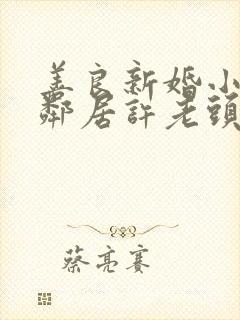 美良新婚小
鄰居許老頭
蔡亮賽